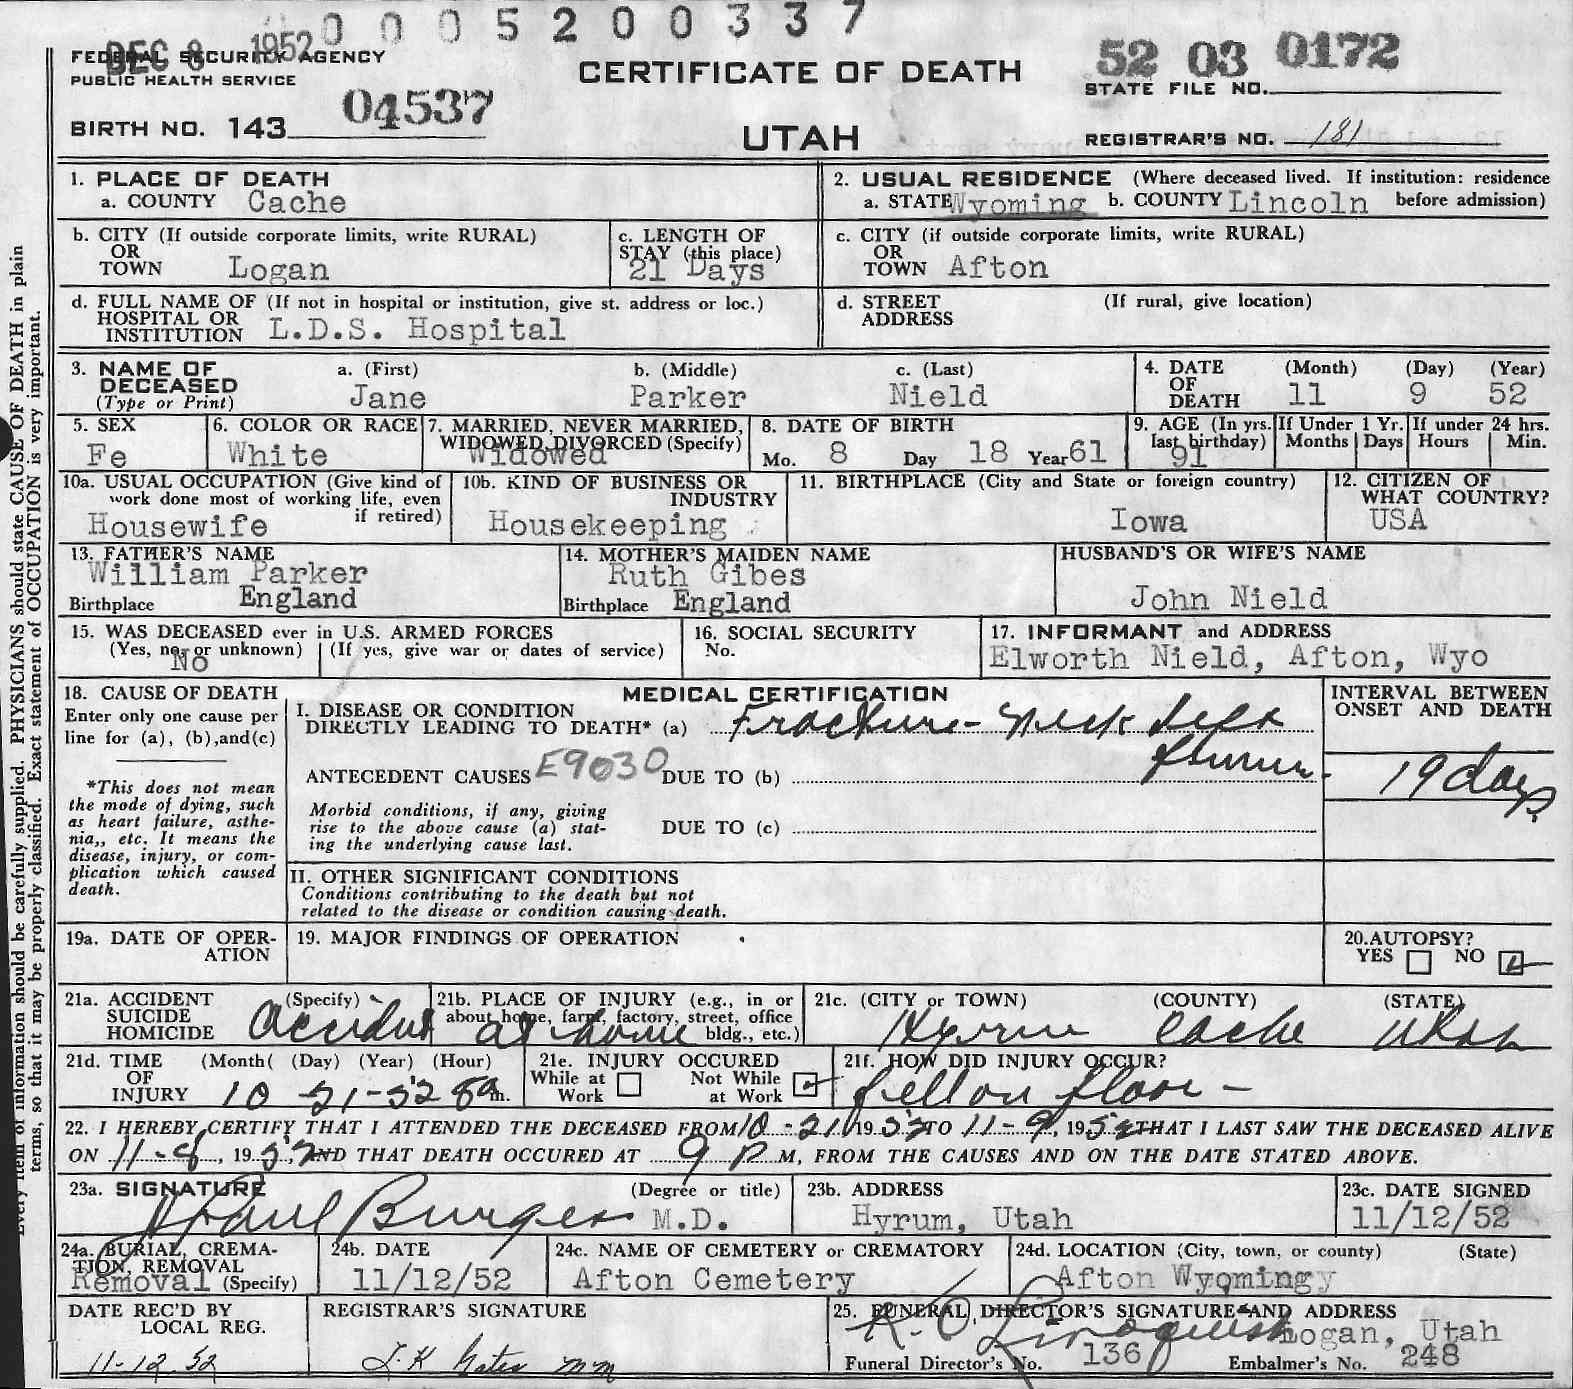 0 0 0 5 2 0 0 3 3 7
DEC 8 1952
FEDERAL SECURITY AGENCY
PUBLIC HEALTH SERVICE
BIRTH NO. 143 04537
CERTIFICATE OF DEATH
UTAH
52 03 0172
STATE FILE NO.
REGISTRAR'S NO. 181
1. PLACE OF DEATH
a. COUNTY Cache
2. USUAL RESIDENCE (Where deceased lived. If institution: residence
a. STATE Wyoming b. COUNTY Lincoln before admission)
b. CITY (If outside corporate limits, write RURAL)
OR
TOWN Logan
c. LENGTH OF
STAY (this place)
21 Days
c. CITY (if outside corporate limits, write RURAL)
OR
TOWN Afton
d. FULL NAME OF (If not in hospital or institution, give st. address or loc.)
HOSPITAL OR
INSTITUTION L.D.S. Hospital
d. STREET (If rural, give location)
ADDRESS
3. NAME OF
DECEASED
(Type or Print)
a. (First) b. (Middle) c. (Last)
Jane Parker Nield
4. DATE
OF
DEATH
(Month) (Day) (Year)
11 9 52
5. SEX
Fe
6. COLOR OR RACE
White
7. MARRIED, NEVER MARRIED,
WIDOWED, DIVORCED (Specify)
Widowed
8. DATE OF BIRTH
Mo. 8 Day 18 Year 61
9. AGE (In yrs.
last birthday)
91
If Under 1 Yr.
Months Days
If under 24 hrs.
Hours Min.
10a. USUAL OCCUPATION (Give kind of
work done most of working life, even
if retired)
Housewife
10b. KIND OF BUSINESS OR
INDUSTRY
Housekeeping
11. BIRTHPLACE (City and State or foreign country)
Iowa
12. CITIZEN OF
WHAT COUNTRY?
USA
13. FATHER'S NAME
William Parker
Birthplace England
14. MOTHER'S MAIDEN NAME
Ruth Gibes
Birthplace England
HUSBAND'S OR WIFE'S NAME
John Nield
15. WAS DECEASED ever in U.S. ARMED FORCES
(Yes, no, or unknown) (If yes, give war or dates of service)
No
16. SOCIAL SECURITY
No.
17. INFORMANT and ADDRESS
Elworth Nield, Afton, Wyo
18. CAUSE OF DEATH
Enter only one cause per
line for (a), (b),and(c)
*This does not mean
the mode of dying, such
as heart failure, asthe-
nia,, etc. It means the
disease, injury, or com-
plication which caused
death.
MEDICAL CERTIFICATION
I. DISEASE OR CONDITION
DIRECTLY LEADING TO DEATH* (a) Fracture - Neck left
femur -
ANTECEDENT CAUSES E9030 DUE TO (b)
Morbid conditions, if any, giving
rise to the above cause (a) stat-
ing the underlying cause last.
DUE TO (c)
INTERVAL BETWEEN
ONSET AND DEATH
19 days
II. OTHER SIGNIFICANT CONDITIONS
Conditions contributing to the death but not
related to the disease or condition causing death.
19a. DATE OF OPER-
ATION
19. MAJOR FINDINGS OF OPERATION
20.AUTOPSY?
YES NO
21a. ACCIDENT (Specify)
SUICIDE
HOMICIDE
Accident
21b. PLACE OF INJURY (e.g., in or
about home, farm, factory, street, office
bldg., etc.)
at home
21c. (CITY or TOWN) (COUNTY) (STATE)
Hyrum Cache Utah
21d. TIME (Month( (Day) (Year) (Hour)
OF
INJURY 10 - 21 - 52 8 a m.
21e. INJURY OCCURED
While at Work
Not While at Work
21f. HOW DID INJURY OCCUR?
fell on floor -
22. I HEREBY CERTIFY THAT I ATTENDED THE DECEASED FROM 10 - 21, 1952 TO 11 - 9, 1952 THAT I LAST SAW THE DECEASED ALIVE
ON 11-8, 1952, AND THAT DEATH OCCURED AT 9 P M, FROM THE CAUSES AND ON THE DATE STATED ABOVE.
23a. SIGNATURE (Degree or title)
Paul Burgess M.D.
23b. ADDRESS
Hyrum, Utah
23c. DATE SIGNED
11/12/52
24a. BURIAL, CREMA-
TION, REMOVAL
Removal (Specify)
24b. DATE
11/12/52
24c. NAME OF CEMETERY or CREMATORY
Afton Cemetery
24d. LOCATION (City, town, or county) (State)
Afton Wyoming
DATE REC'D BY
LOCAL REG.
11-12-52
REGISTRAR'S SIGNATURE
25. FUNERAL DIRECTOR'S SIGNATURE AND ADDRESS
K. O. Lindquist Logan, Utah
Funeral Director's No. 136 Embalmer's No. 248
Every item of information should be carefully supplied. PHYSICIANS should state CAUSE OF DEATH in plain
terms, so that it may be properly classified. Exact statement of OCCUPATION is very important.